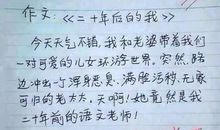 作文:《二十年后的我》
今天天气不错,我和老婆带着我们
一对可爱的儿女环游世界,突然,路
边冲出一个浑身恶臭、满脸污秽、无家
可归的老太太,天啊!她竟然是我
二十年前的语文老师!